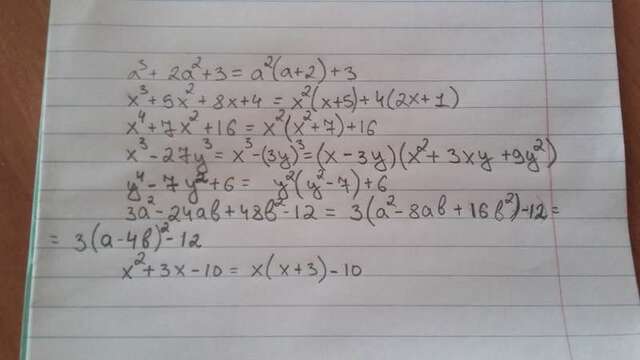 a³ + 2a² + 3 = a²(a+2) + 3
x³ + 5x² + 8x + 4 = x²(x+5) + 4(2x+1)
x⁴ + 7x² + 16 = x²(x² + 7) + 16
x³ - 27y³ = x³ - (3y)³ = (x - 3y)(x² + 3xy + 9y²)
y⁴ - 7y² + 6 = y²(y² - 7) + 6
3a² - 24ab + 48b² - 12 = 3(a² - 8ab + 16b²) - 12 =
= 3(a - 4b)² - 12
x² + 3x - 10 = x(x+3) - 10